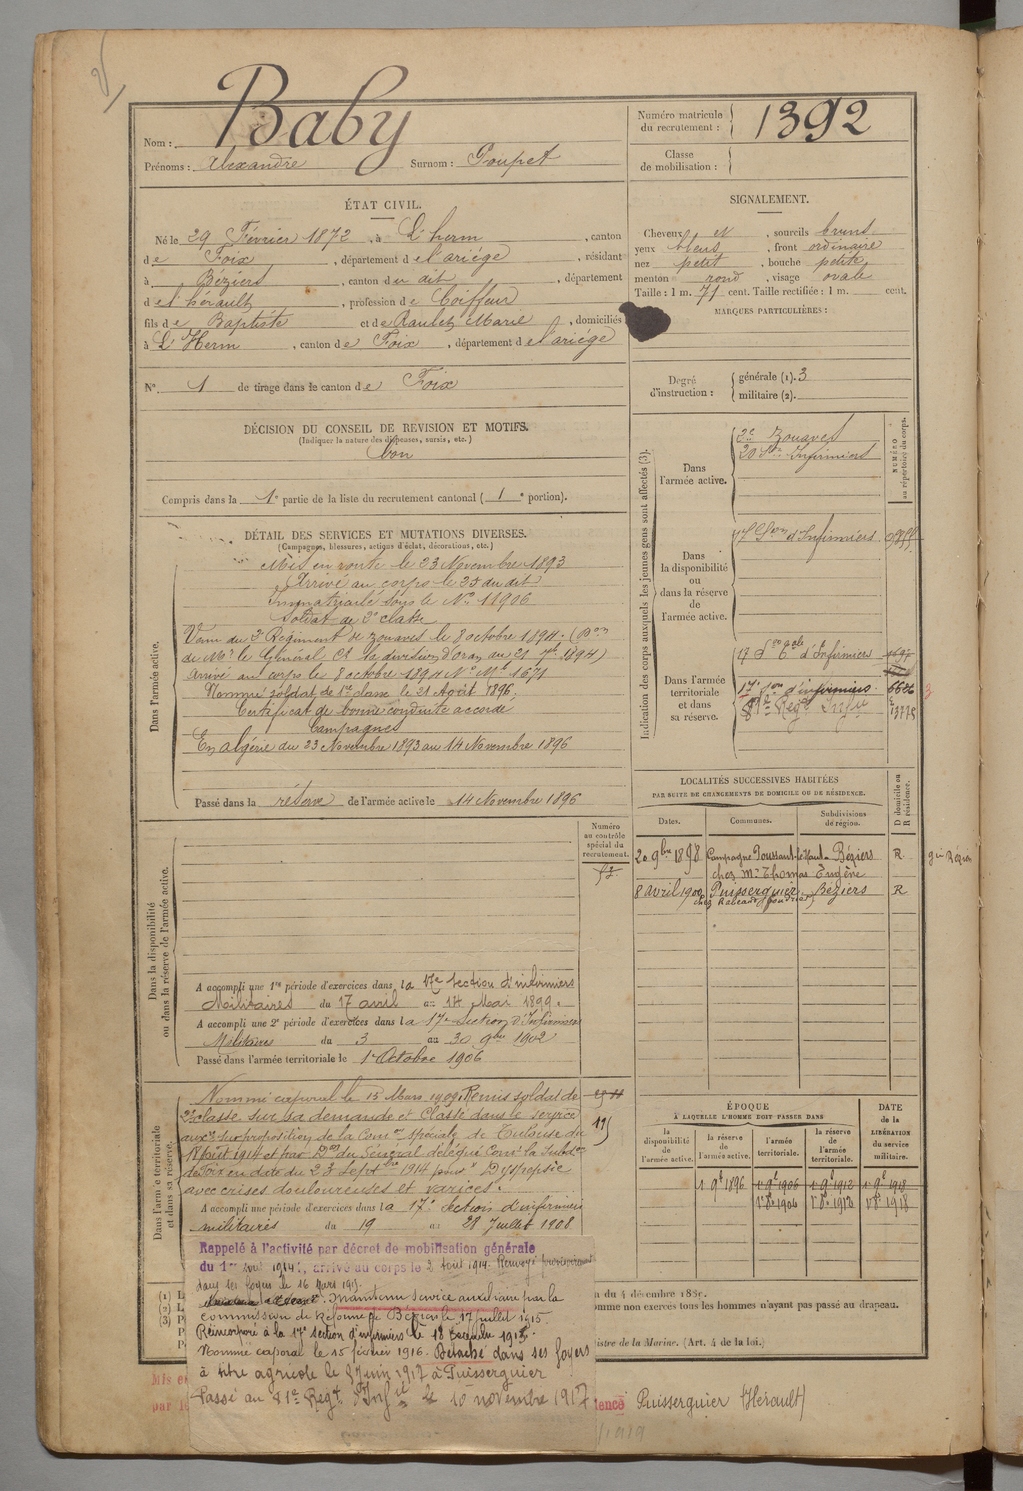 Nom : Baby
Prénoms : Alexandre Surnom : Poupet
Numéro matricule du recrutement : 1392
Classe de mobilisation :
ÉTAT CIVIL.
Né le 29 Février 1872, à L'herm, canton
de Foix, département de l'ariége, résidant
à Béziers, canton du dit, département
de l'hérault, profession de Coiffeur
fils de Baptiste et de Raulet Marie, domiciliés
à L'Herm, canton de Foix, département de l'ariége
N° 1 de tirage dans le canton de Foix
SIGNALEMENT.
Cheveux et, sourcils bruns
yeux bleus, front ordinaire
nez petit, bouche petite
menton rond, visage ovale
Taille : 1 m. 71 cent. Taille rectifiée : 1 m. cent.
MARQUES PARTICULIÈRES :
Degré d'instruction : générale (1). 3
militaire (2).
DÉCISION DU CONSEIL DE REVISION ET MOTIFS.
(Indiquer la nature des dispenses, sursis, etc.)
bon
Compris dans la 1e partie de la liste du recrutement cantonal (1e portion).
DÉTAIL DES SERVICES ET MUTATIONS DIVERSES.
(Campagnes, blessures, actions d'éclat, décorations, etc.)
Dans l'armée active.
Mis en route le 23 Novembre 1893
Arrivé au corps le 25 du dit
Immatriculé sous le N° 11906
Soldat de 2e classe
Venu du 2e Régiment de zouaves le 8 octobre 1894. (Don
de Mr le Général Ct la division d'Oran du 21 7bre 1894)
Arrivé au corps le 8 octobre 1894 No Mle 1671
Nommé soldat de 1re classe le 21 Août 1896.
Certificat de bonne conduite accordé
Campagnes
En algérie du 23 Novembre 1893 au 14 Novembre 1896
Passé dans la réserve de l'armée active le 14 Novembre 1896
Indication des corps auxquels les jeunes gens sont affectés (3).
NUMÉRO au répertoire du corps.
Dans l'armée active.
2e Zouaves
20 Son Infirmiers
Dans la disponibilité ou dans la réserve de l'armée active.
17 Son d'Infirmiers
Dans l'armée territoriale et dans sa réserve.
17 Son Tale d'Infirmiers
17e son d'infirmiers. 6626
81e Régt Infie 13778
LOCALITÉS SUCCESSIVES HABITÉES
PAR SUITE DE CHANGEMENTS DE DOMICILE OU DE RÉSIDENCE.
D domicile ou R résidence.
Dates. Communes. Subdivisions de région.
20 9bre 1898 Campagne Toussant-le-Haut- Béziers R.
chez Mr Thomas Eugène
8 avril 1900 Puisserguier Béziers R
Numéro au contrôle spécial du recrutement.
Dans la disponibilité ou dans la réserve de l'armée active.
A accompli une 1re période d'exercices dans la 17e Section d'infirmiers
Militaires du 17 avril au 14 Mai 1899.
A accompli une 2e période d'exercices dans la 17e Section d'Infirmiers
Militaires du 3 au 30 9bre 1902
Passé dans l'armée territoriale le 1er Octobre 1906
Dans l'armée territoriale et dans sa réserve.
Nommé caporal le 15 Mars 1909. Remis soldat de
2e classe sur sa demande et Classé dans le service
auxre sur proposition de la Comon spéciale de Toulouse du
Août 1914 et par Don du Général délégué Comt la Subdon
de Foix en date du 23 Septbre 1914 pour "Dyspepsie
avec crises douloureuses et varices".
A accompli une période d'exercices dans la 17e Section d'infirmiers
militaires du 19 au 28 Juillet 1908
ÉPOQUE
À LAQUELLE L'HOMME DOIT PASSER DANS
DATE de la LIBÉRATION du service militaire.
la disponibilité de l'armée active. la réserve de l'armée active. l'armée territoriale. la réserve de l'armée territoriale.
1er 9bre 1896 1906 1912 1918
1906 1912 1918
Rappelé à l'activité par décret de mobilisation générale
du 1er Août 1914, arrivé au corps le 2 Août 1914. Renvoyé provisoirement
dans ses foyers le 16 mars 1915.
Maintenu service auxiliaire par la
commission de réforme de Béziers le 17 juillet 1915.
Réincorporé à la 17e section d'infirmiers le 18
Nommé caporal le 15 février 1916. Détaché dans ses foyers
à titre agricole le 8 Juin 1917 à Puisserguier
Passé au 81e Régt d'Infie le 10 novembre 1917
du 4 décembre 188
omme non exercés tous les hommes n'ayant pas passé au drapeau.
istre de la Marine. (Art. 4 de la loi.)
Mis en
par le
dence Puisserguier (Hérault)
1919